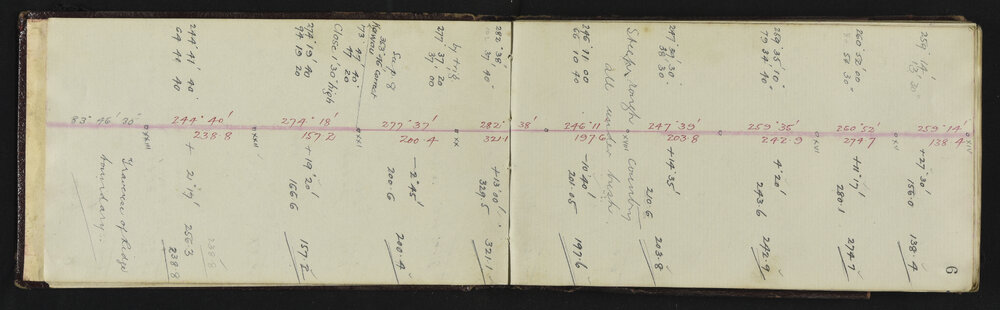 6
259° 14′
oXIV
138·4
+27°30′
156·0
138·4
260°52′00″
80 52 30
260°52′
274·7
+11°17′
280·1
274·7
oXVI
259°35′10″
79 34 40
259°35′
242·9
4°20′
243·6
242·9
247°39′30″
38 30
247°39′
203·8
+14°35′
210·6
203·8
Steep rough country
all under bush
oXVIII
246°11′00
66 10 40
246°11′
197·6
-10°40′
201·05
197·6
282°38′
37 40
282° 38′
321·1
+13°00′
329·5
321·1
by trig
277°37′20
37 00
oXX
277°37′
200·4
-2°45′
200·6
200·4
See p 8
303°46 correct
Nowau
73 47 40
47 20
oXXI
Close 1′30″ high
274°19′40
94 19 20
274°18′
157·2
+19°20′
166·6
157·2
oXXII
244°41′40
64 44 40
244°40′
238·8
+ 21°19′
256·3
238·8
238·8
oXXIII
83° 46′ 30″
Traverse of Ridge
boundary.